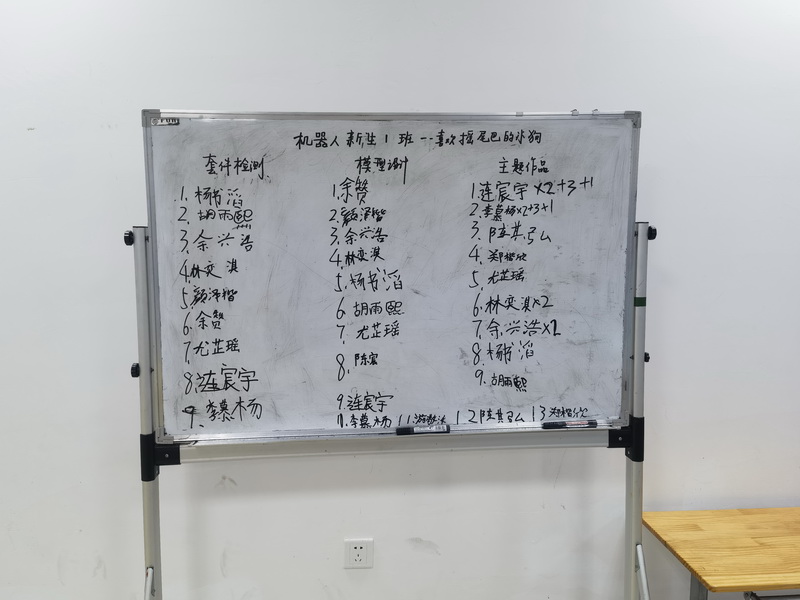 机器人新生1班--喜欢摇尾巴的小狗
套件检测
1.杨书滔
2.胡雨熙
3.余兴浩
4.林奕淇
5.颜泽楷
6.余赞
7.尤芷瑶
8.涟宸宇
9.李慕杨
模型设计
1.余赞
2.颜泽楷
3.余兴浩
4.林奕淇
5.杨书滔
6.胡雨熙
7.尤芷瑶
8.陈宏
9.涟宸宇
11.李慕杨 11. 12陆其弘 13郑楷欣
主题作品
1.涟宸宇×2+3+1
2.李慕杨×2+3+1
3.陆其弘
4.郑楷欣
5.尤芷瑶
6.林奕淇×2
7.余兴浩×2
8.杨书滔
9.胡雨熙